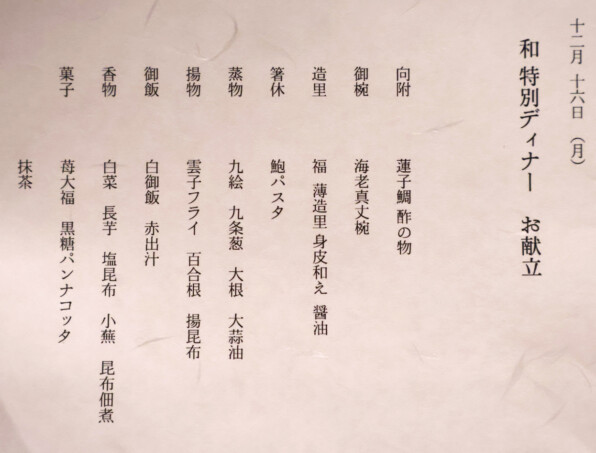 十二月 十六日 （月）
和 特別ディナー お献立
向附 蓮子鯛 酢の物
御椀 海老真丈椀
造里 福 薄造里 身皮和え 醤油
箸休 鮑パスタ
蒸物 九絵 九条葱 大根 大蒜油
揚物 雲子フライ 百合根 揚昆布
御飯 白御飯 赤出汁
香物 白菜 長芋 塩昆布 小蕪 昆布佃煮
菓子 苺大福 黒糖パンナコッタ
抹茶